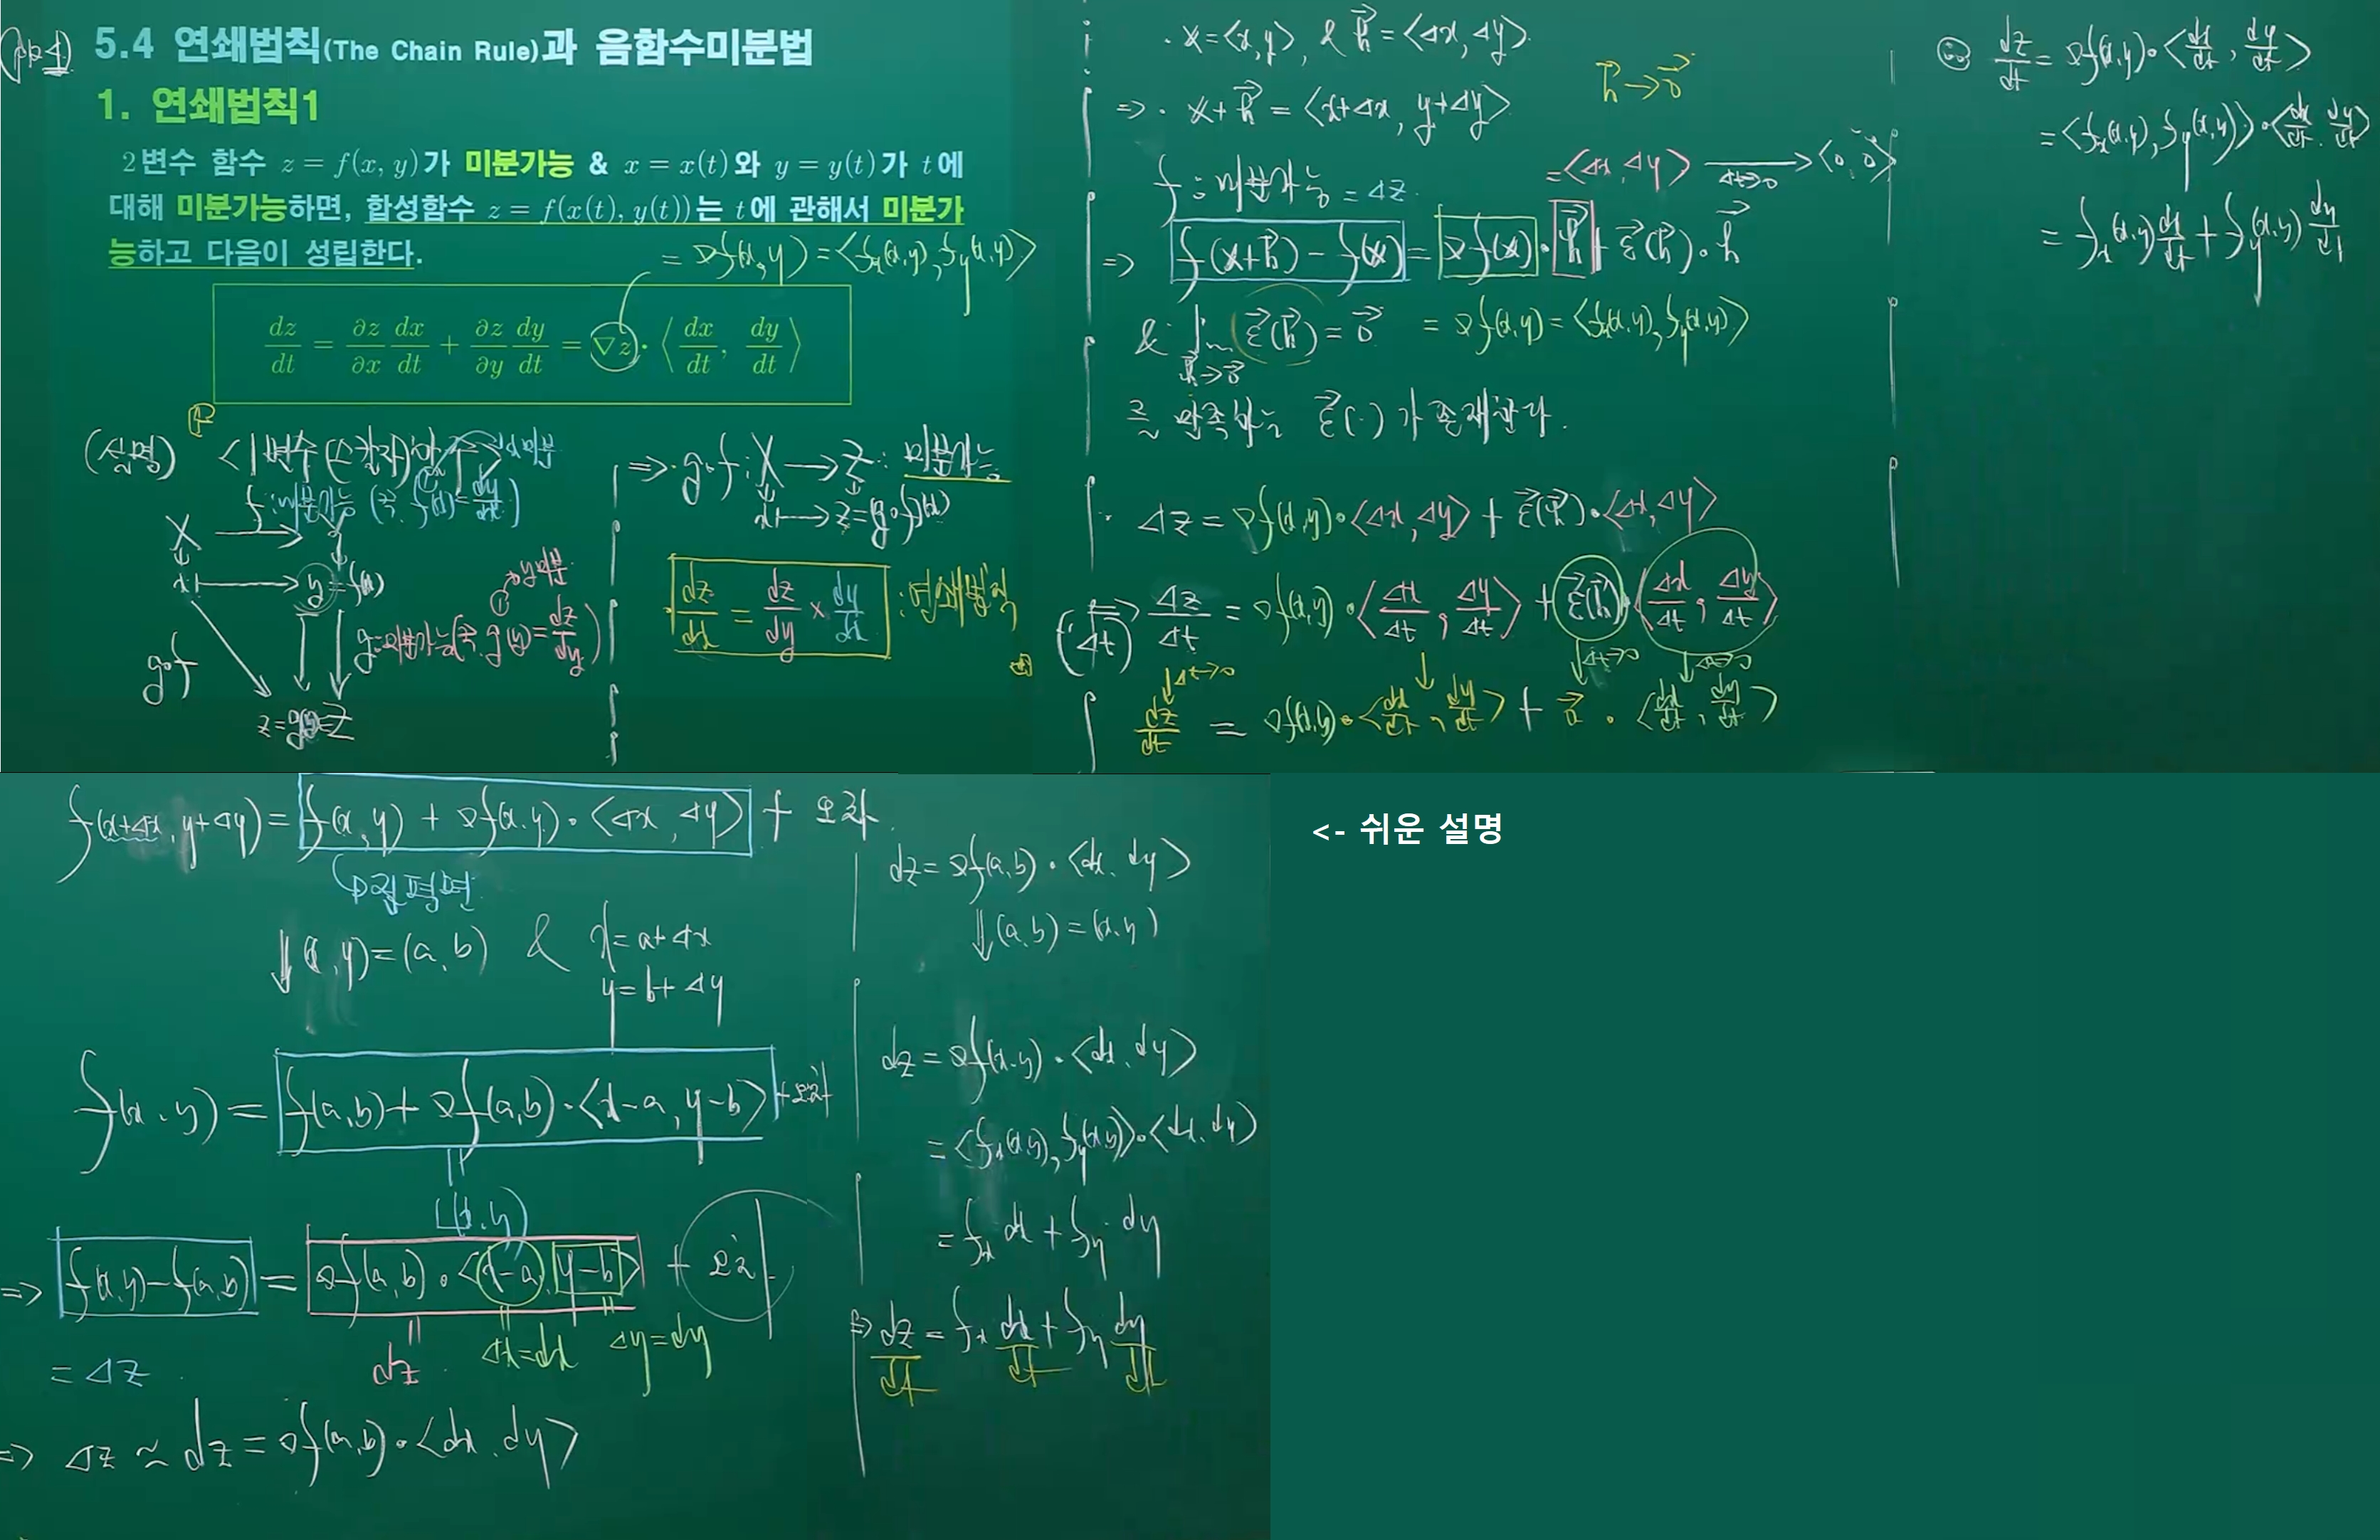 5.4 연쇄법칙(The Chain Rule)과 음함수미분법
1. 연쇄법칙1
2변수 함수 z = f(x, y)가 미분가능 & x = x(t)와 y = y(t)가 t에
대해 미분가능하면, 합성함수 z = f(x(t), y(t))는 t에 관해서 미분가
능하고 다음이 성립한다.
= ∇f(x,y) = <f_x(x,y), f_y(x,y)>
dz/dt = ∂z/∂x dx/dt + ∂z/∂y dy/dt = ∇z · ⟨dx/dt, dy/dt⟩
(설명) <1변수
f : 미분가능 (즉, f'(x) = dy/dx)
X → Y
x → y = f(x)
① → y미분
g : 미분가능(즉, g'(y) = dz/dy)
g∘f
z = g(y) Z
⇒ · g∘f : X → Z : 미분가능
x → z = (g∘f)(x)
dz/dx = dz/dy × dy/dx : 연쇄법칙
· x = <x,y>, & h = <Δx, Δy>
⇒ · x + h = <x+Δx, y+Δy>
h → 0
= <Δx, Δy> → <0, 0>
Δt→0
f : 미분가능 = Δz
⇒ f(x+h) − f(x) = ∇f(x) · h + ε(h) · h
& lim ε(h) = 0 = ∇f(x,y) = <f_x(x,y), f_y(x,y)>
h→0
를 만족하는 ε(·)가 존재한다.
· Δz = ∇f(x,y) · <Δx, Δy> + ε(h) · <Δx, Δy>
(÷Δt) ⇒ Δz/Δt = ∇f(x,y) · <Δx/Δt, Δy/Δt> + ε(h) · <Δx/Δt, Δy/Δt>
↓Δt→0 ↓ ↓Δt→0 ↓Δt→0
dz/dt = ∇f(x,y) · <dx/dt, dy/dt> + 0 · <dx/dt, dy/dt>
∴ dz/dt = ∇f(x,y) · <dx/dt, dy/dt>
= <f_x(x,y), f_y(x,y)> · <dx/dt, dy/dt>
= f_x(x,y) dx/dt + f_y(x,y) dy/dt
f(x+Δx, y+Δy) = f(x,y) + ∇f(x,y) · <Δx, Δy> + 오차
접평면
⇓ (x,y) = (a,b) & x = a+Δx
y = b+Δy
f(x,y) = f(a,b) + ∇f(a,b) · <x−a, y−b> + 오차
L(x,y)
⇒ f(x,y) − f(a,b) = ∇f(a,b) · <x−a, y−b> + 오차
= Δz dz Δx=dx Δy=dy
⇒ Δz ≈ dz = ∇f(a,b) · <dx, dy>
dz = ∇f(a,b) · <dx, dy>
⇓ (a,b) = (x,y)
dz = ∇f(x,y) · <dx, dy>
= <f_x(x,y), f_y(x,y)> · <dx, dy>
= f_x dx + f_y dy
⇒ dz/dt = f_x dx/dt + f_y dy/dt
<- 쉬운 설명